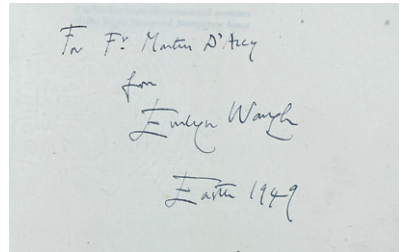 For Fr. Martin D'Arcy
from
Evelyn Waugh
Easter 1949